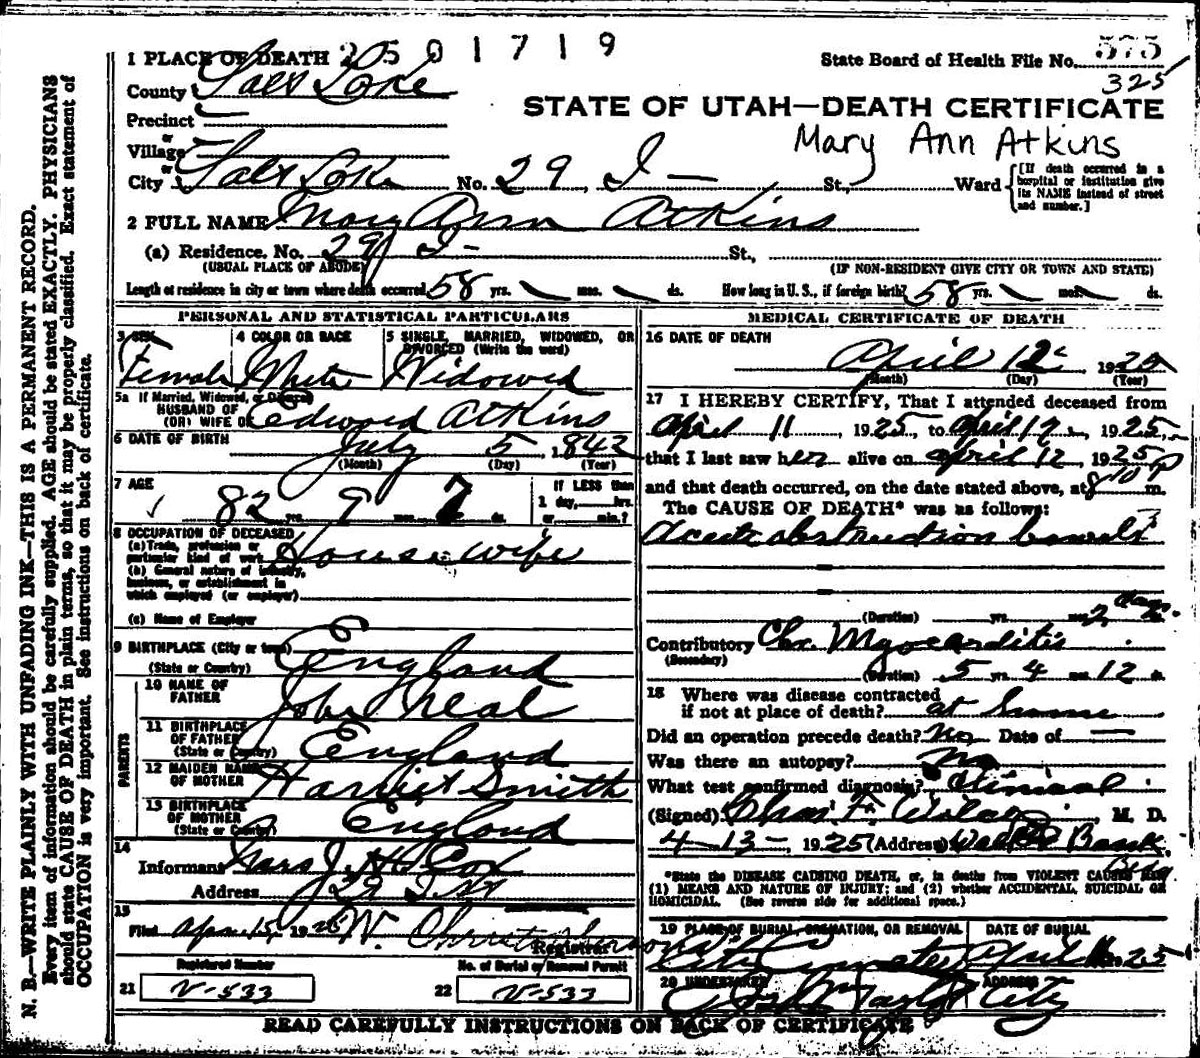 1 PLACE OF DEATH 2501719
State Board of Health File No. 575
325
County Salt Lake
STATE OF UTAH—DEATH CERTIFICATE
Precinct
or
Village
Mary Ann Atkins
or
City Salt Lake No. 29, I — St., Ward [If death occurred in a hospital or institution give its NAME instead of street and number.]
2 FULL NAME Mary Ann Atkins
(a) Residence. No. 29 I - St.,
(USUAL PLACE OF ABODE) (IF NON-RESIDENT GIVE CITY OR TOWN AND STATE)
Length of residence in city or town where death occurred 58 yrs. mos. ds. How long in U. S., if foreign birth? 58 yrs. mos. ds.
PERSONAL AND STATISTICAL PARTICULARS
3 SEX
Female
4 COLOR OR RACE
White
5 SINGLE, MARRIED, WIDOWED, OR
DIVORCED (Write the word)
Widowed
5a If Married, Widowed, or Divorced
HUSBAND OF
(OR) WIFE OF Edward Atkins
6 DATE OF BIRTH July 5, 1842
(Month) (Day) (Year)
7 AGE
82 yrs. 9 mos. 7 ds.
If LESS than
1 day, hrs.
or min.?
8 OCCUPATION OF DECEASED
(a) Trade, profession or
particular kind of work House wife
(b) General nature of industry,
business, or establishment in
which employed (or employer)
(c) Name of Employer
9 BIRTHPLACE (City or town)
(State or Country) England
PARENTS
10 NAME OF
FATHER John Neal
11 BIRTHPLACE
OF FATHER
(State or Country) England
12 MAIDEN NAME
OF MOTHER Harriet Smith
13 BIRTHPLACE
OF MOTHER
(State or Country) England
14
Informant Mrs J. H. Cox
Address 29 I St
15
Filed Apr. 15, 1925
Registrar
Registered Number
21 V-533
No. of Burial or Removal Permit
22 V-533
MEDICAL CERTIFICATE OF DEATH
16 DATE OF DEATH
April 12 1925
(Month) (Day) (Year)
17 I HEREBY CERTIFY, That I attended deceased from
April 11, 1925, to April 12, 1925,
that I last saw her alive on April 12, 1925
and that death occurred, on the date stated above, at 8 10 P m.
The CAUSE OF DEATH* was as follows:
Acute obstruction bowels
(Duration) yrs. mos. 2 days
Contributory Chr. Myocarditis
(Secondary)
(Duration) 5 yrs. 4 mos. 12 ds.
18 Where was disease contracted
if not at place of death? at home
Did an operation precede death? No Date of —
Was there an autopsy? No
What test confirmed diagnosis? Clinical
(Signed) Chas. F. Wilcox, M. D.
4-13-, 1925 (Address) Bank
*State the DISEASE CAUSING DEATH, or, in deaths from VIOLENT CAUSES
(1) MEANS AND NATURE OF INJURY; and (2) whether ACCIDENTAL, SUICIDAL OR
HOMICIDAL. (See reverse side for additional space.)
19 PLACE OF BURIAL, CREMATION, OR REMOVAL
City Cemetery
DATE OF BURIAL
April 1925
20 UNDERTAKER
Taylor
ADDRESS
City
READ CAREFULLY INSTRUCTIONS ON BACK OF CERTIFICATE
N. B.—WRITE PLAINLY WITH UNFADING INK—THIS IS A PERMANENT RECORD.
Every item of information should be carefully supplied. AGE should be stated EXACTLY. PHYSICIANS
should state CAUSE OF DEATH in plain terms, so that it may be properly classified. Exact statement of
OCCUPATION is very important. See instructions on back of certificate.